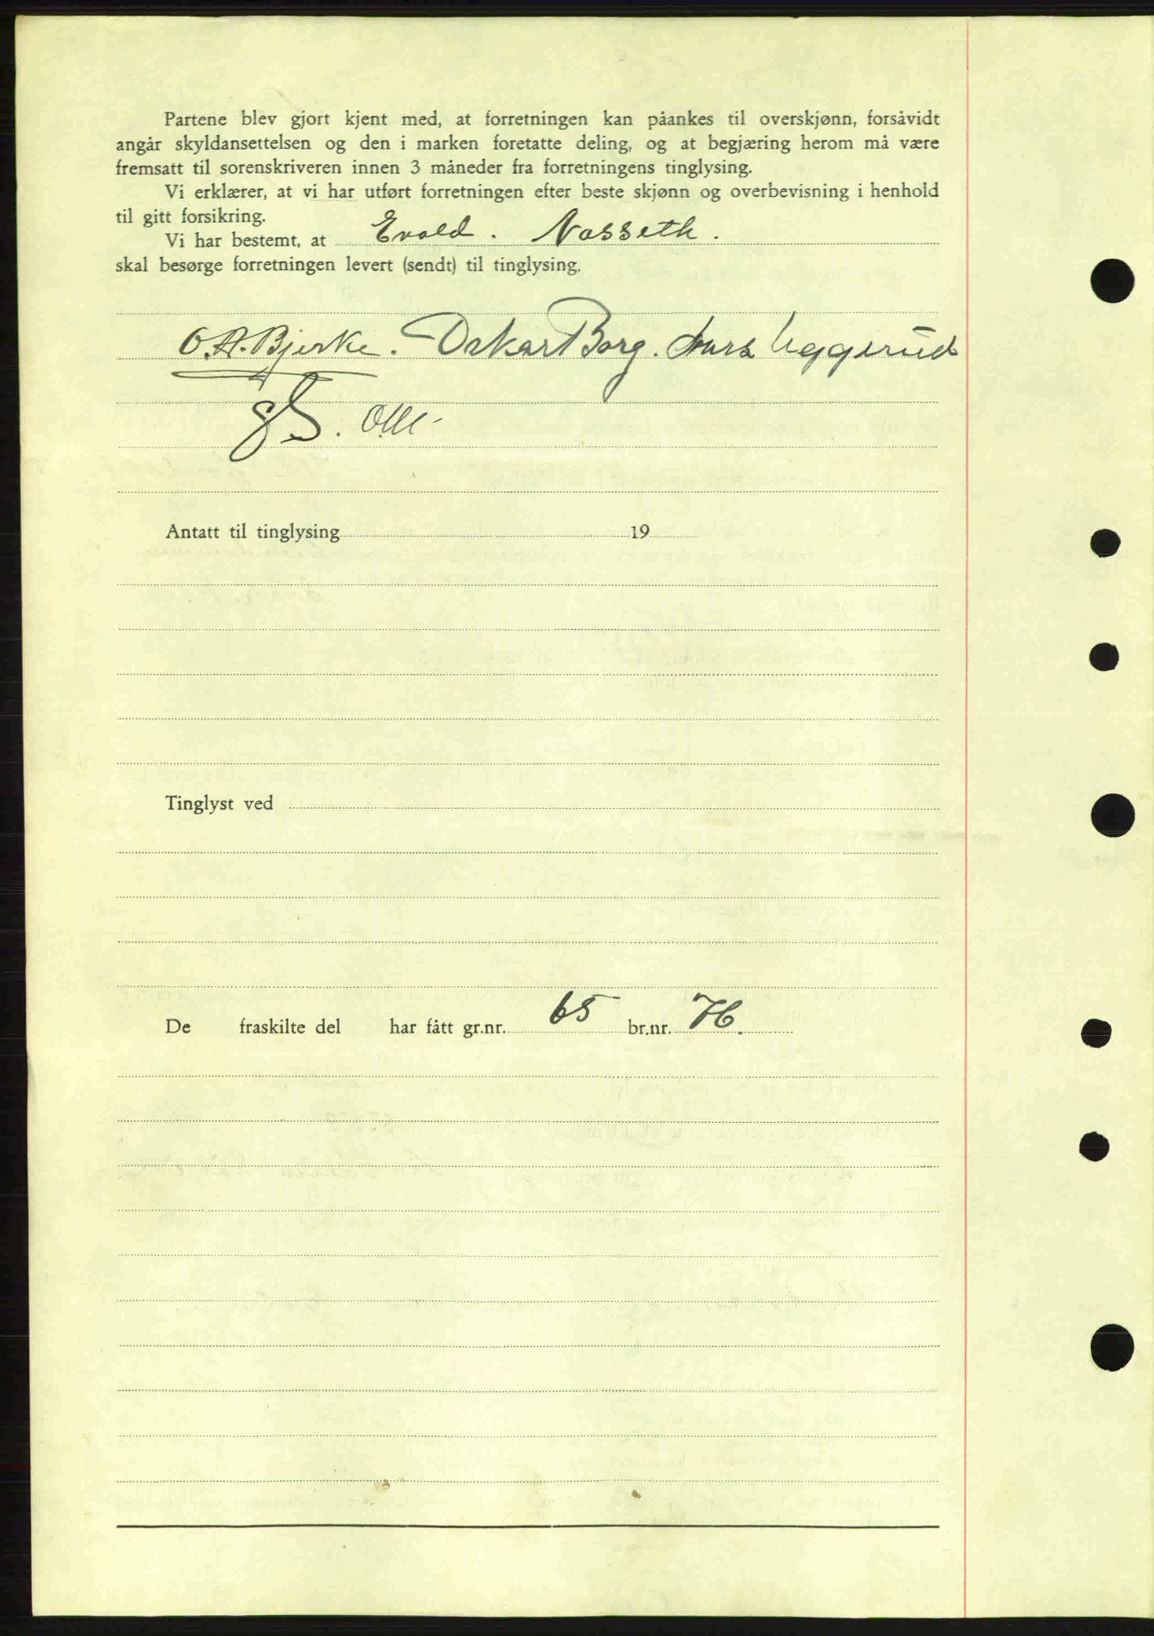 Partene blev gjort kjent med, at forretningen kan påankes til overskjønn, forsåvidt
angår skyldansettelsen og den i marken foretatte deling, og at begjæring herom må være
fremsatt til sorenskriveren innen 3 måneder fra forretningens tinglysing.
Vi erklærer, at vi har utført forretningen efter beste skjønn og overbevisning i henhold
til gitt forsikring.
Vi har bestemt, at Evald. Nasseth.
skal besørge forretningen levert (sendt) til tinglysing.
O.A. Bjerke. Oskar Borg. Lars Uggerud
Antatt til tinglysing 19
Tinglyst ved
De fraskilte del har fått gr.nr. 65 br.nr. 76.